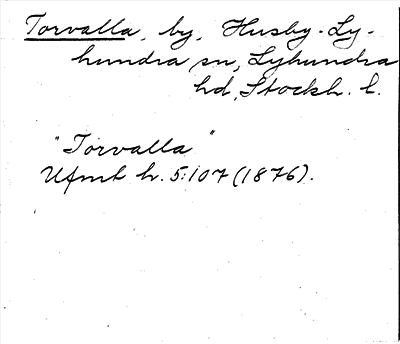 Torvalla, by, Husby-Ly-
hundra sn, Lyhundra
hd, Stockh. l.
"Torvalla"
Ufmt h. 5:107 (1876).